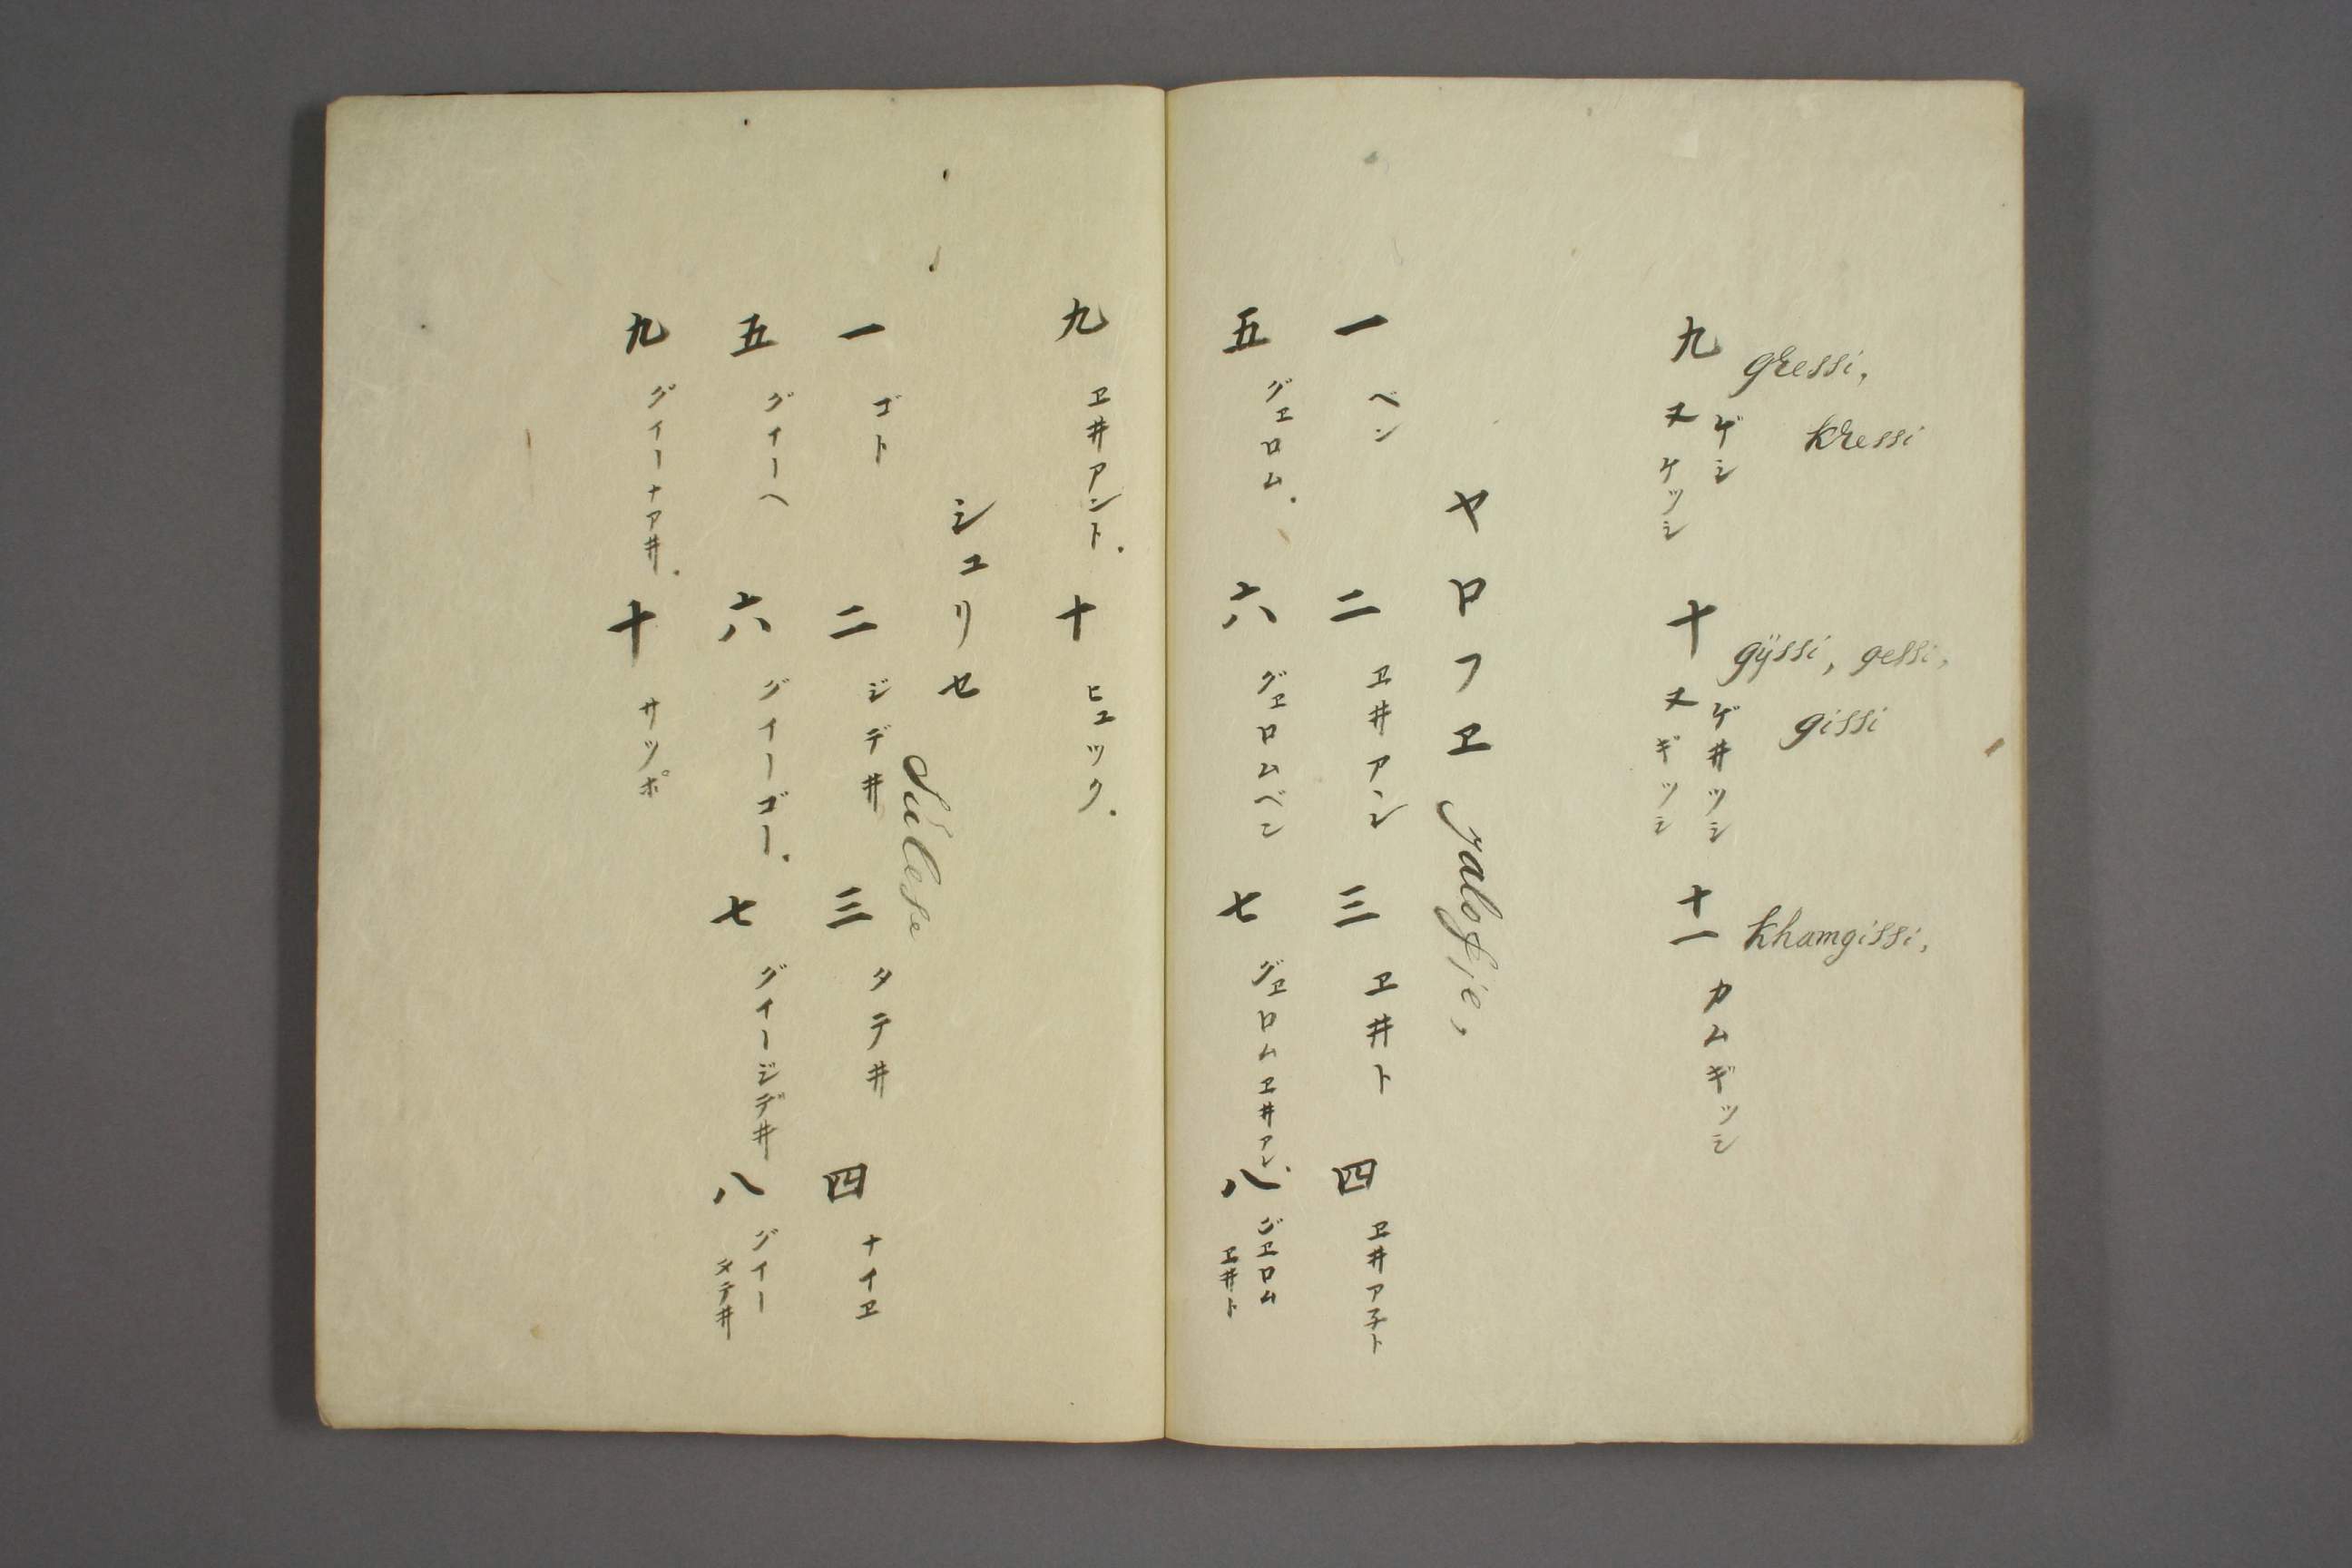 gressi,
kressi
九 ゲシ
又ケッシ
gÿssi, gessi,
gissi
十 ゲ井ッシ
又ギッシ
khamgissi,
十一 カムギッシ
ヤロフヱ jaloffie,
一 ベン 二 ヱ井アン 三 ヱ井ト 四 ヱ井アネト
五 グヱロム. 六 グヱロムベン 七 グヱロムヱ井アン. 八 グヱロム
ヱ井ト
九 ヱ井アント. 十 ヒュック.
シュリセ Sulese
一 ゴト 二 ジデ井 三 タテ井 四 ナイヱ
五 グイーヘ 六 グイーゴー. 七 グイージデ井 八 グイー
タテ井
九 グイーナア井. 十 サッポ